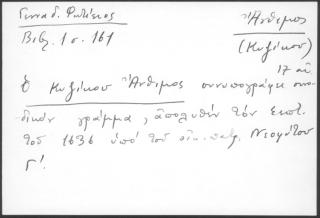 Γενναδ. Φωτίειος
Βιβλ. 1 σ. 161
Ἄνθιμος
(Κυζίκου)
17 αἰ
Ὁ Κυζίκου Ἄνθιμος συνυπογράφει συνο-
δικὸν γράμμα, ἀπολυθὲν τὸν Σεπτ.
τοῦ 1636 ὑπὸ τοῦ οἰκ. πατρ. Νεοφύτου
Γ'.